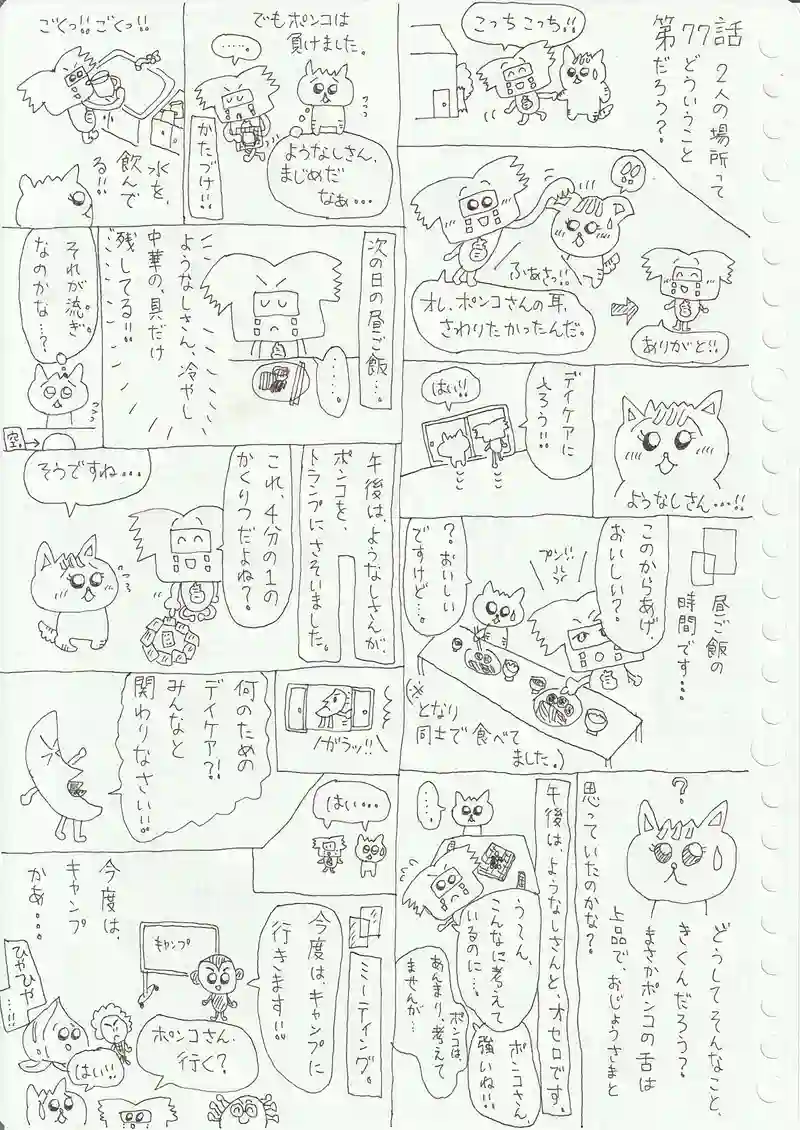 第77話
2人の場所って
どういうこと
だろう？
こっちこっち!!
ふぁさっ!!
オレ、ポンコさんの耳、
さわりたかったんだ。
ありがと!!
ようなしさん…!!
デイケアに
もどろう!!
はい!!
昼ご飯の
時間です…
このからあげ、
おいしい？
プン!!
？おいしい
ですけど…
(※
となり
同士で食べて
ました。)
？
どうしてそんなこと、
きくんだろう？
まさかポンコの舌は
上品で、おじょうさまと
思っていたのかな？
午後は、ようなしさんと、オセロです。
…。
う〜ん、
こんなに考えて
いるのに…。
ポンコさん、
強いね!!
ポンコは、
あんまり、考えて
ませんが…
でもポンコは
負けました。
……。
かたづけ!!
ようなしさん、
まじめだ
なぁ…
ごくっ!!ごくっ!!
水を、
飲んで
る!!
次の日の昼ご飯…。
…。
ようなしさん、冷やし
中華の、具だけ
残してる!!
それが流ぎ。
なのかな…？
空。
午後は、ようなしさんが、
ポンコを、
トランプにさそいました。
これ、4分の1の
かくりつだよね？
そうですね…
ガラッ!!
何のための
デイケア?!
みんなと
関わりなさい!!
はい…
ミーティング。
今度は、キャンプに
行きます!!
キャンプ
今度は、
キャンプ
かぁ…
ひやひや
…!!
ポンコさん、
行く？
はい!!